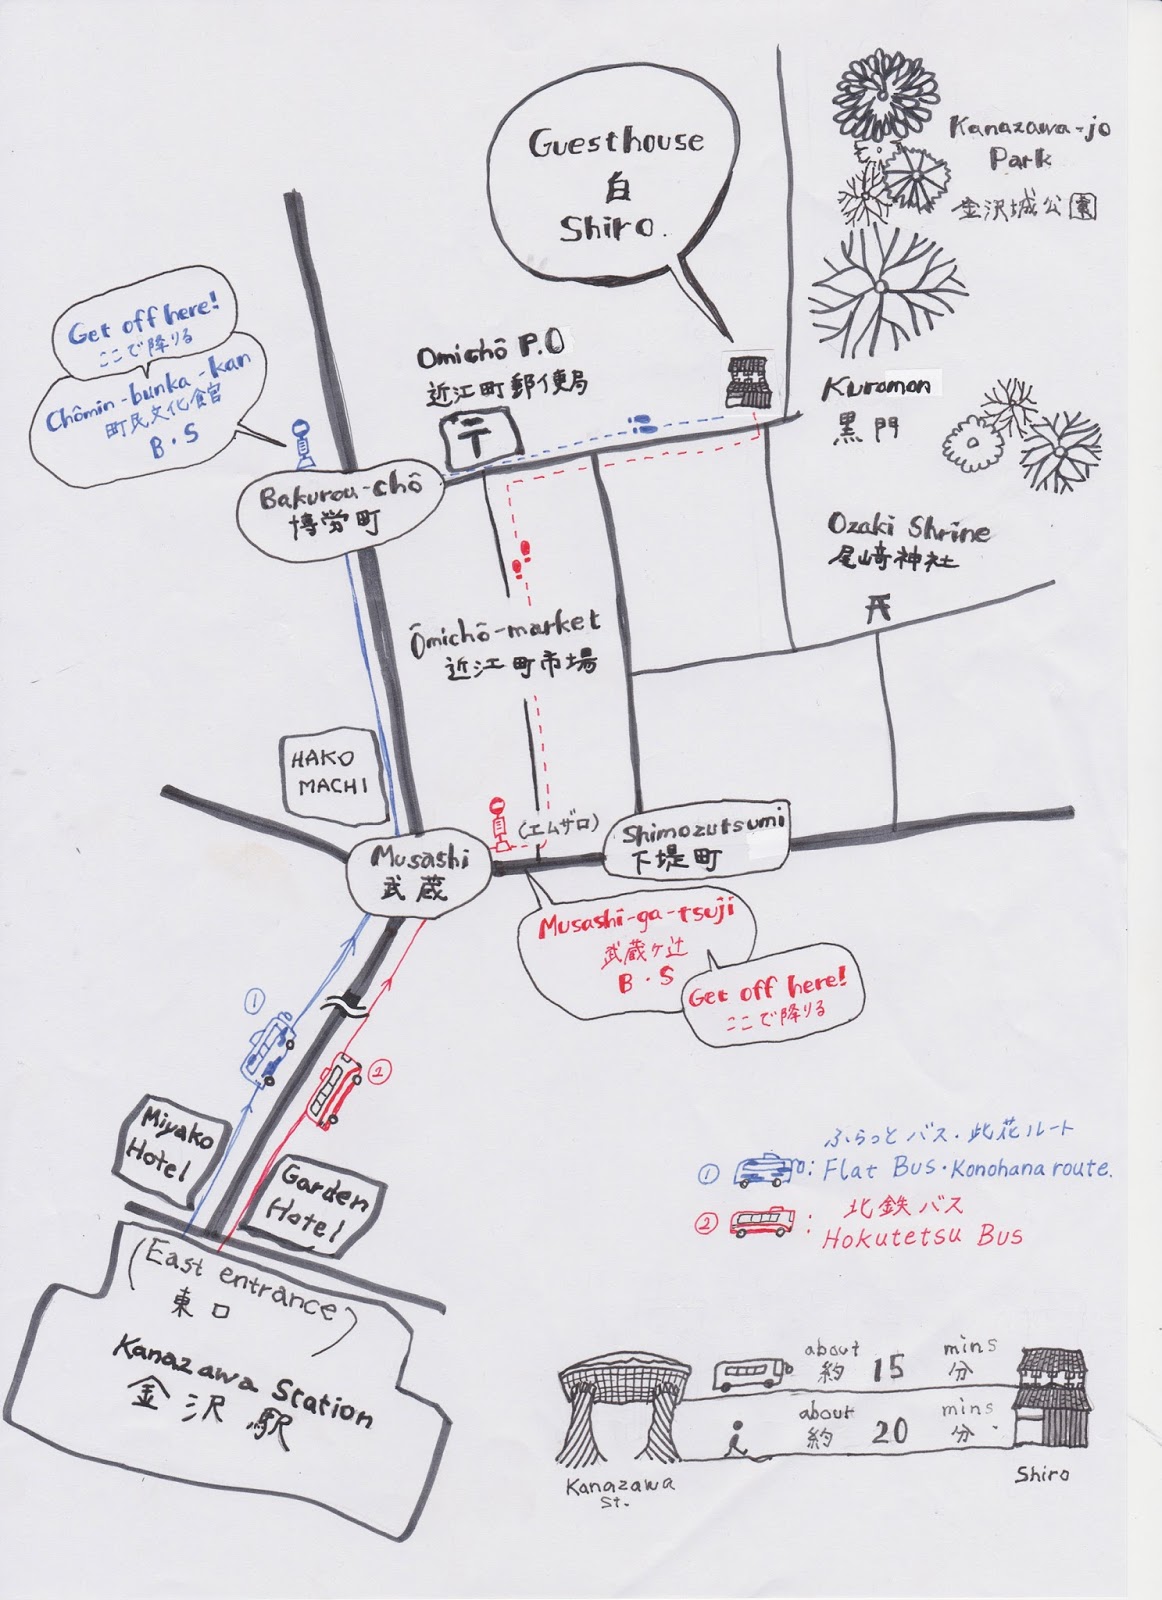 Guesthouse
白
Shiro.
Kanazawa-jo
Park
金沢城公園
Get off here!
ここで降りる
Chômin-bunka-kan
町民文化食官
B・S
Omichô P.O
近江町郵便局
〒
Kuromon
黒門
Bakurou-chô
博労町
Ozaki Shrine
尾崎神社
Ômichô-market
近江町市場
HAKO
MACHI
(エムザロ)
Shimozutsumi
下堤町
Musashi
武蔵
Musashi-ga-tsuji
武蔵ヶ辻
B・S
Get off here!
ここで降りる
①
②
Miyako
Hotel
Garden
Hotel
(East entrance)
東口
Kanazawa Station
金沢駅
ふらっとバス・此花ルート
①: Flat Bus・Konohana route.
北鉄バス
②: Hokutetsu Bus
about 15 mins
約 分
about 20 mins
約 分
Kanazawa
St.
Shiro